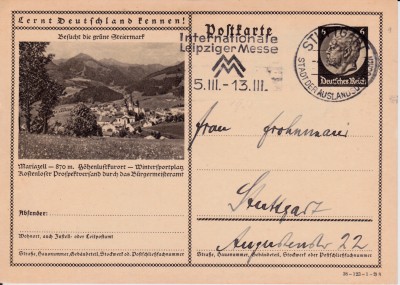 Lernt Deutschland kennen!
Besucht die grüne Steiermark
Mariazell — 870 m. Höhenluftkurort — Wintersportplatz
Kostenloser Prospektversand durch das Bürgermeisteramt
Absender:
Wohnort, auch Zustell- oder Leitpostamt
Straße, Hausnummer, Gebäudeteil, Stockwerk od. Postschließfachnummer
Postkarte
Internationale
Leipziger Messe
5.III.-13.III.
STADT DER AUSLANDS
6 6
Deutsches Reich
Frau Frohnmaier
Stuttgart
Augustenstr 22
Straße, Hausnummer, Gebäudeteil, Stockwerk oder Postschließfachnummer